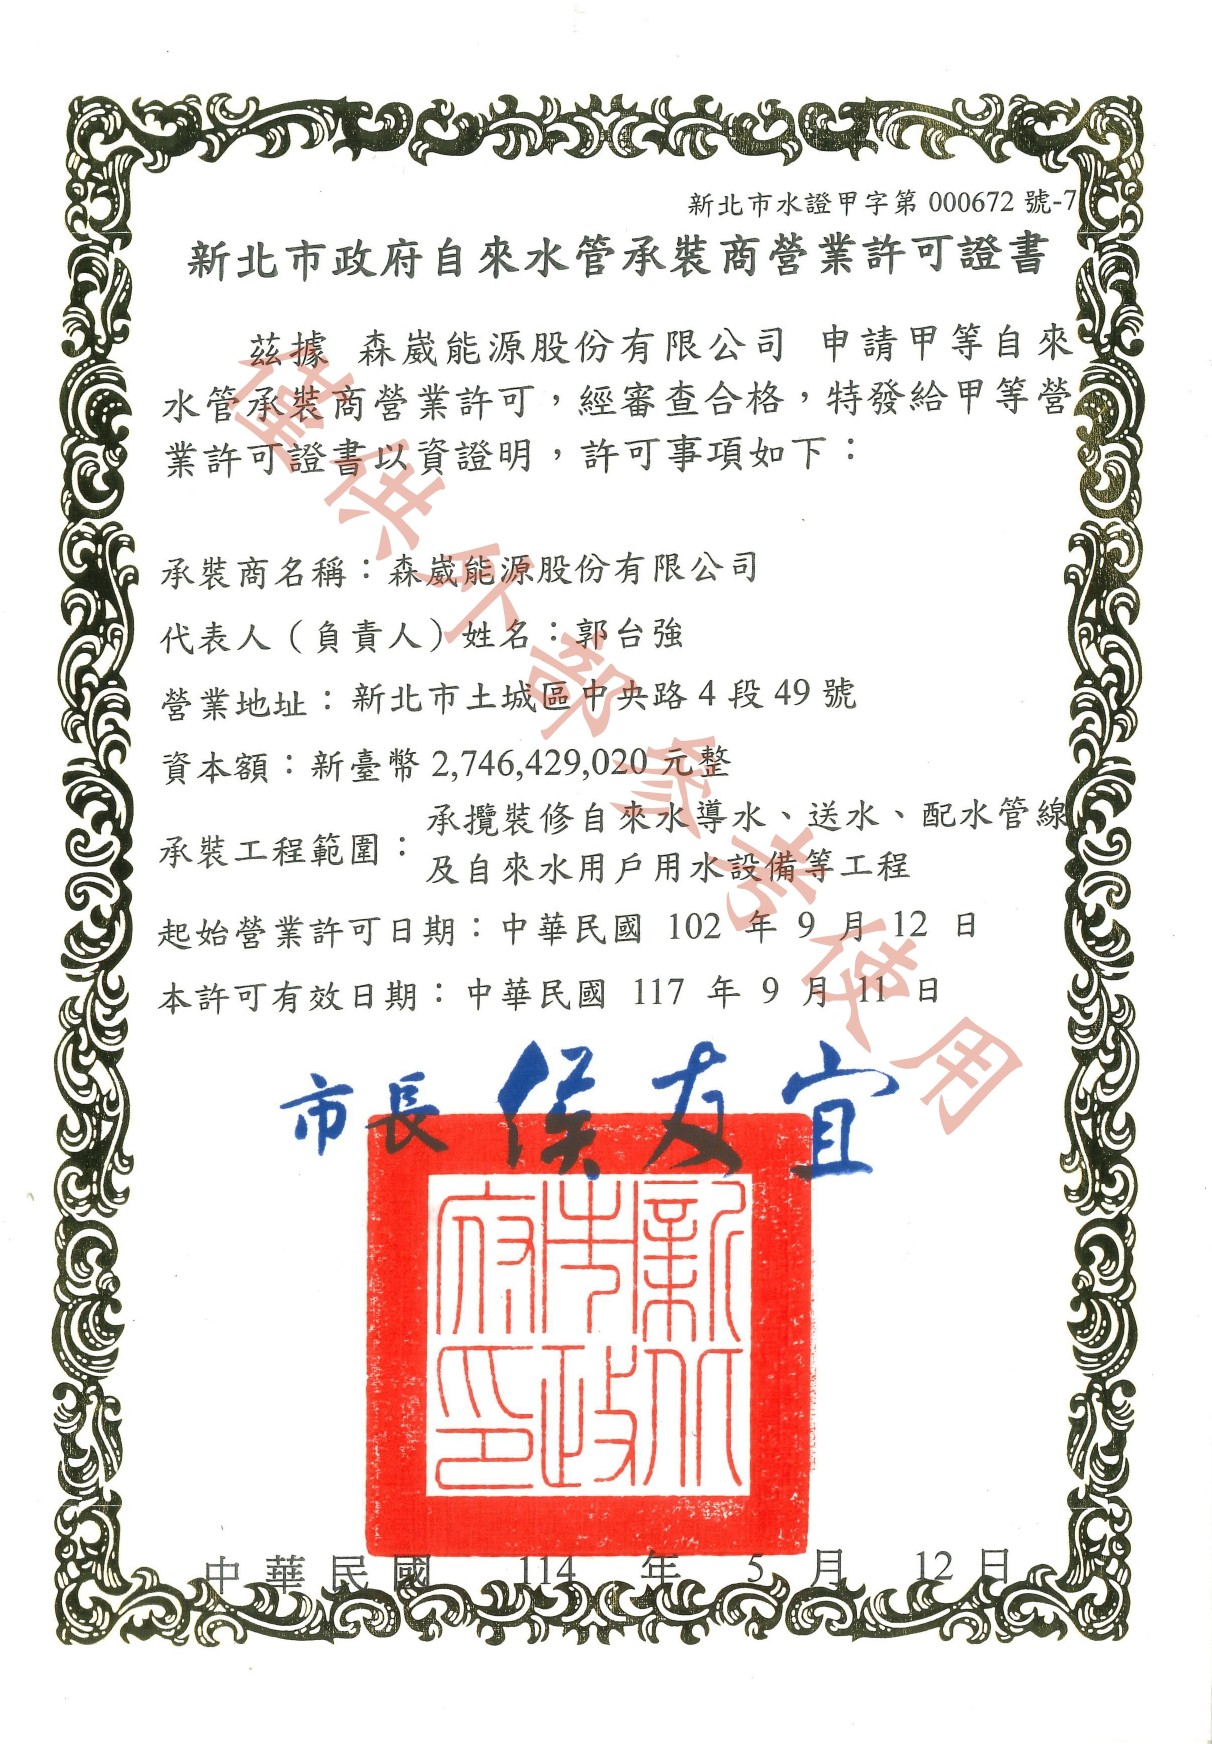 新北市水證甲字第 000672 號-7
新北市政府自來水管承裝商營業許可證書
茲據 森崴能源股份有限公司 申請甲等自來
水管承裝商營業許可，經審查合格，特發給甲等營
業許可證書以資證明，許可事項如下：
承裝商名稱：森崴能源股份有限公司
代表人（負責人）姓名：郭台強
營業地址：新北市土城區中央路 4 段 49 號
資本額：新臺幣 2,746,429,020 元整
承裝工程範圍：承攬裝修自來水導水、送水、配水管線
及自來水用戶用水設備等工程
起始營業許可日期：中華民國 102 年 9 月 12 日
本許可有效日期：中華民國 117 年 9 月 11 日
僅供外部參考使用
市長 侯友宜
新北
市政
府印
中華民國 114 年 5 月 12 日